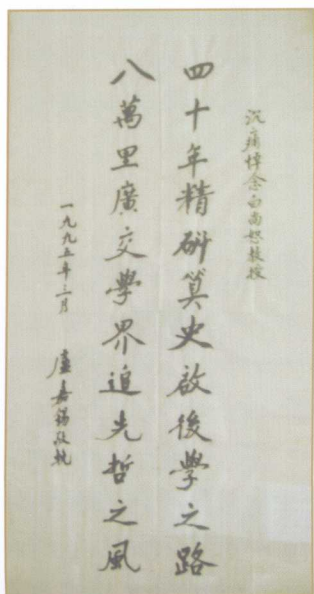 沉痛悼念白尚恕教授
四十年精研算史啟後學之路
八萬里廣交學界追先哲之風
一九九五年三月
盧嘉錫敬輓